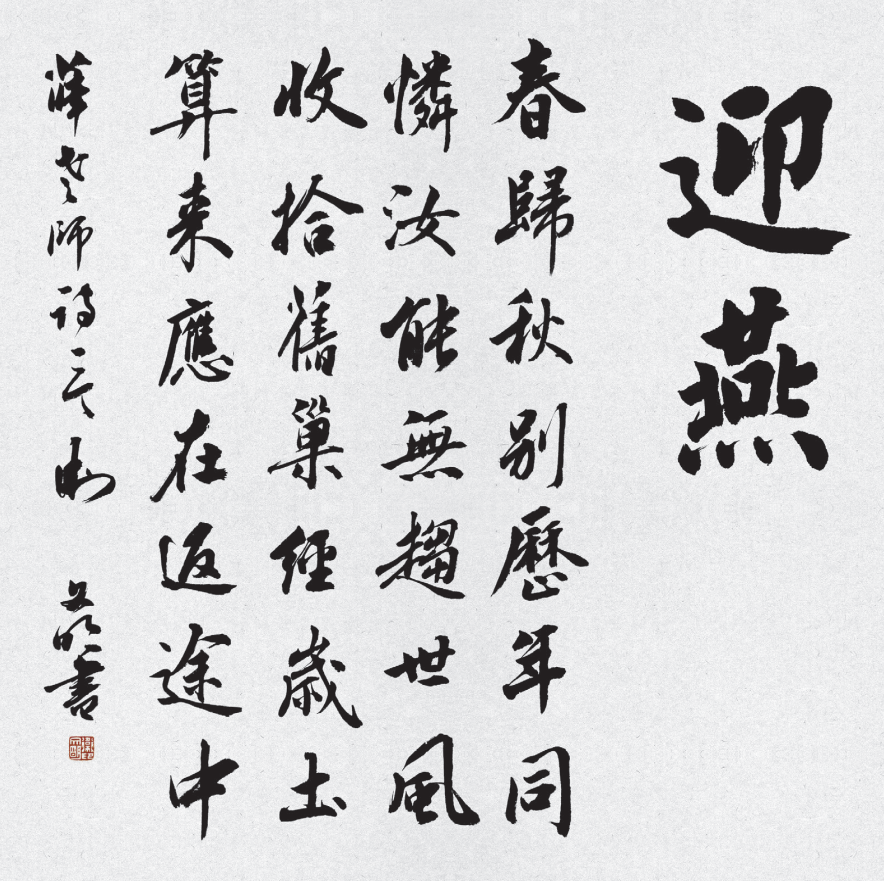 迎燕
春歸秋别歷年同
憐汝能無趨世風
收拾舊巢經歲土
算来應在返途中
老師詩一首
書